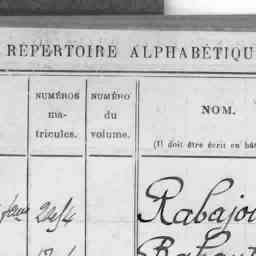 RÉPERTOIRE ALPHABÉTIQU
NUMÉROS
ma-
tricules.
NUMÉRO
du
volume.
NOM.
(Il doit être écrit en bât
2454
Rabajoi